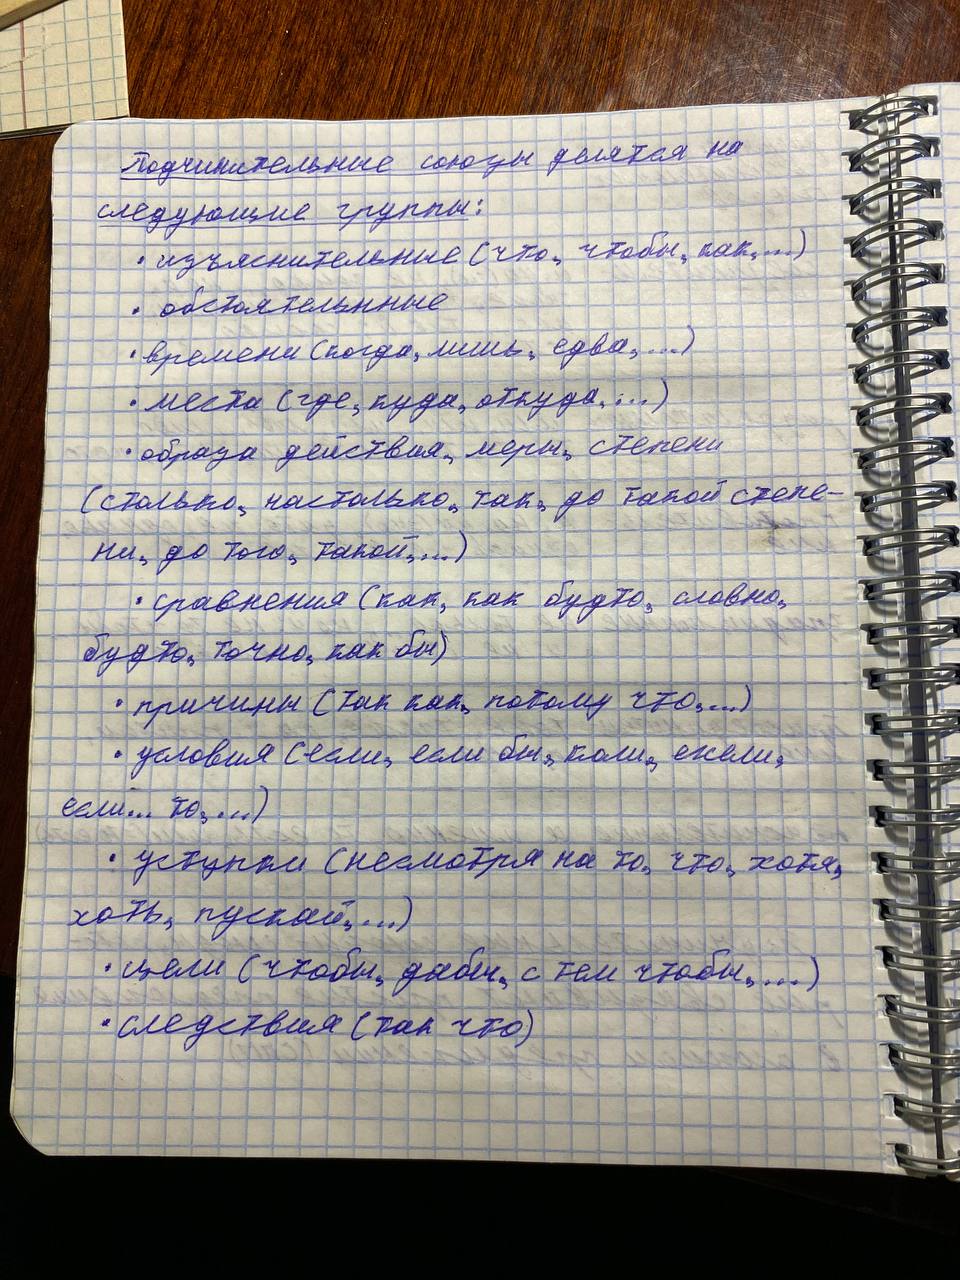 Подчинительные союзы делятся на
следующие группы:
• изъяснительные (что, чтобы, как, ...)
• обстоятельнные
• времени (когда, лишь, едва, ...)
• места (где, куда, откуда, ...)
• образа действия, меры, степени
(столько, настолько, так, до такой степе-
ни, до того, такой, ...)
• сравнения (как, как будто, словно,
будто, точно, как бы)
• причины (так как, потому что, ...)
• условия (если, если бы, коли, ежели,
если... то, ...)
• уступки (несмотря на то, что, хотя,
хоть, пускай, ...)
• цели (чтобы, дабы, с тем чтобы, ...)
• следствия (так что)